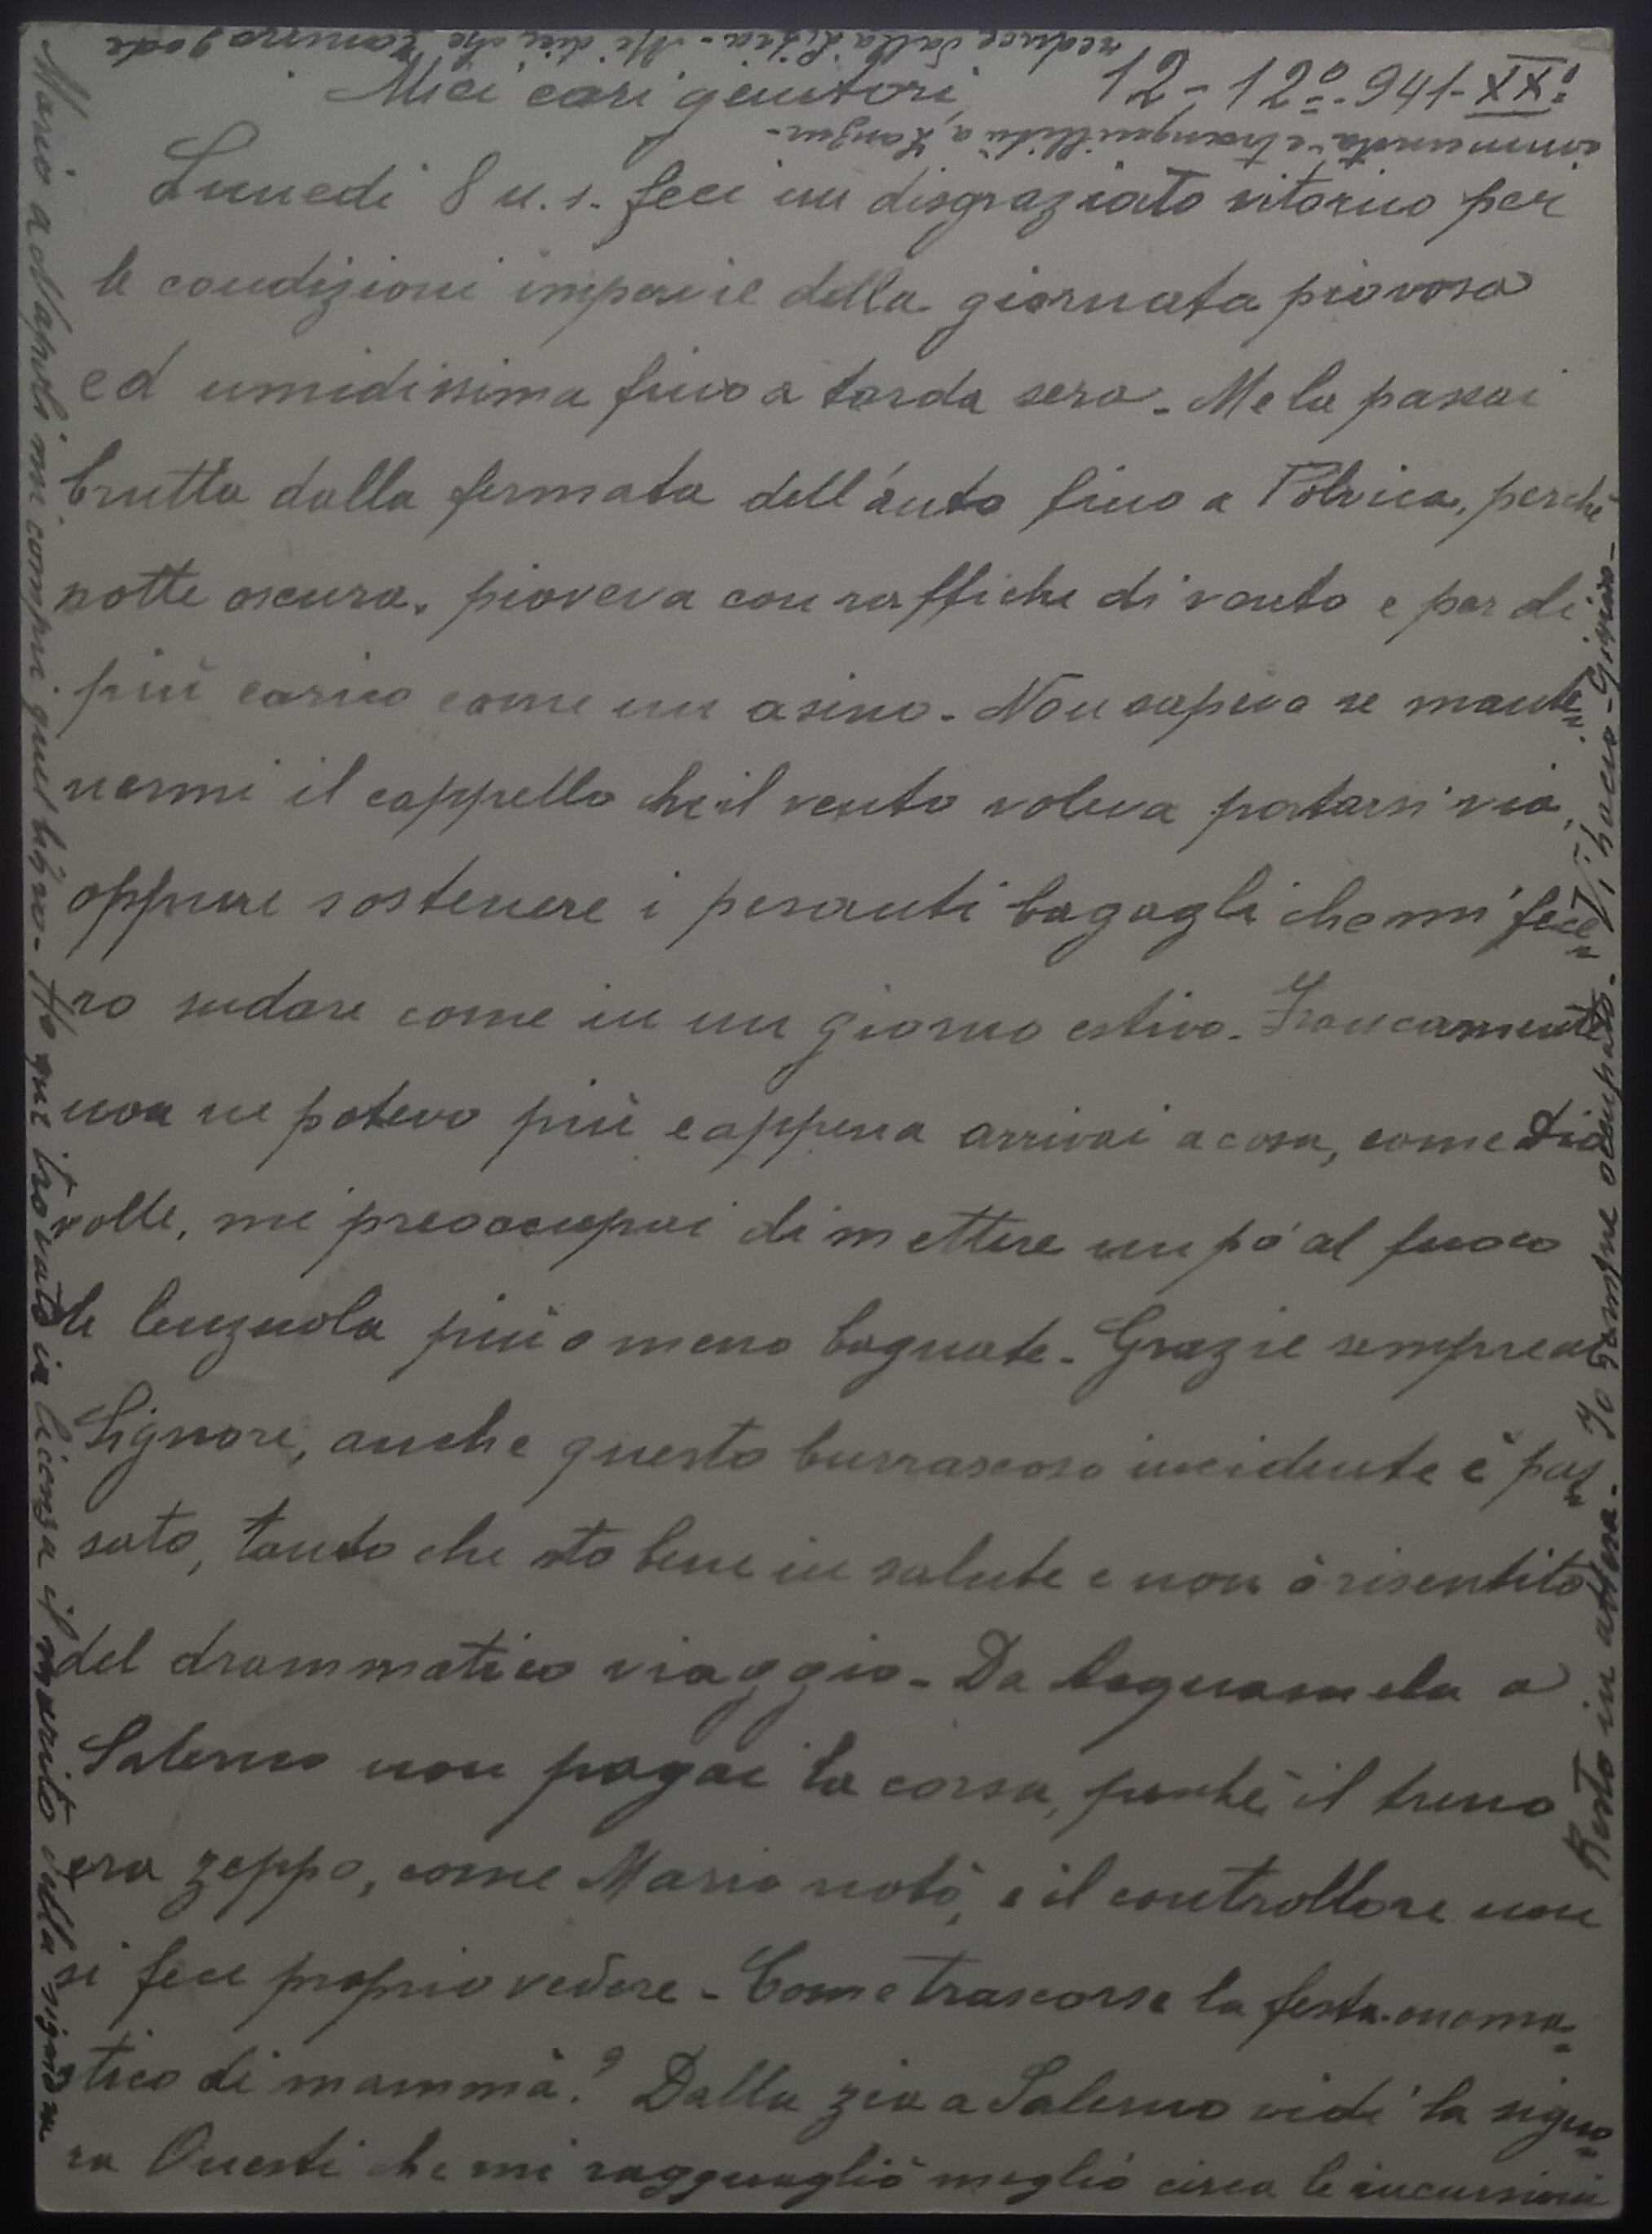 12-12º-941-XXº
Miei cari genitori,
Lunedì 8 u.s. feci un disgraziato ritorno per
le condizioni impervie della giornata piovosa
ed umidissima fino a tarda sera. Me la passai
brutta dalla fermata dell'auto fino a Polvica, perchè
notte oscura, pioveva con raffiche di vento e per di
più carico come un asino. Non sapevo se mante=
nermi il cappello che il vento voleva portarsi via,
oppure sostenere i pesanti bagagli che mi fece=
ro sudare come in un giorno estivo. Francamente
non ne potevo più e appena arrivai a casa, come Dio
volle, mi preoccupai di mettere un pò al fuoco
le lenzuola più o meno bagnate. Grazie sempre al
Signore, anche questo burrascoso incidente è pas=
sato, tanto che sto bene in salute e non ò risentito
del drammatico viaggio. Da a
Salerno non pagai la corsa, perchè il treno
era zeppo, come Mario notò, e il controllore non
si fece proprio vedere. Come trascorse la festa onoma=
stico di mammà? Dalla zia a Salerno vidi la signo=
ra Questi che mi ragguagliò meglio circa le incursioni
Mario a Napoli mi compri quel libro. Ho qui trovato in licenza il marito della signora
reduce dalla Libia. Mi dice che Zanzur gode
rinnovata tranquillità a Zanzur.
Resto in attesa. Io sempre occupato. Vi bacio. Gino.